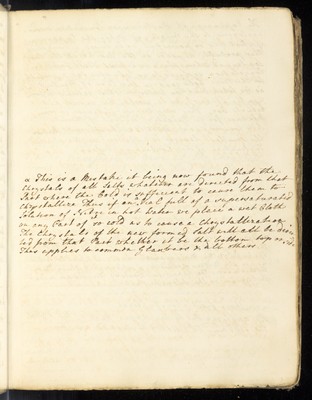 a This is a Mistake it being now found that the
Chrystals of all Salts whatever are directed from that
Part where the Cold is sufficient to cause them to
Chrystallize Thus if an Vial full of a supersaturated
Solution of in hot Water we place a wet Cloth
on any Part of so cold as to cause a Chrystallization
The Chrystals of the new formed Salt will all be direc-
ted from that Part whether it be the bottom top or
This applies to common Glaubers & all others